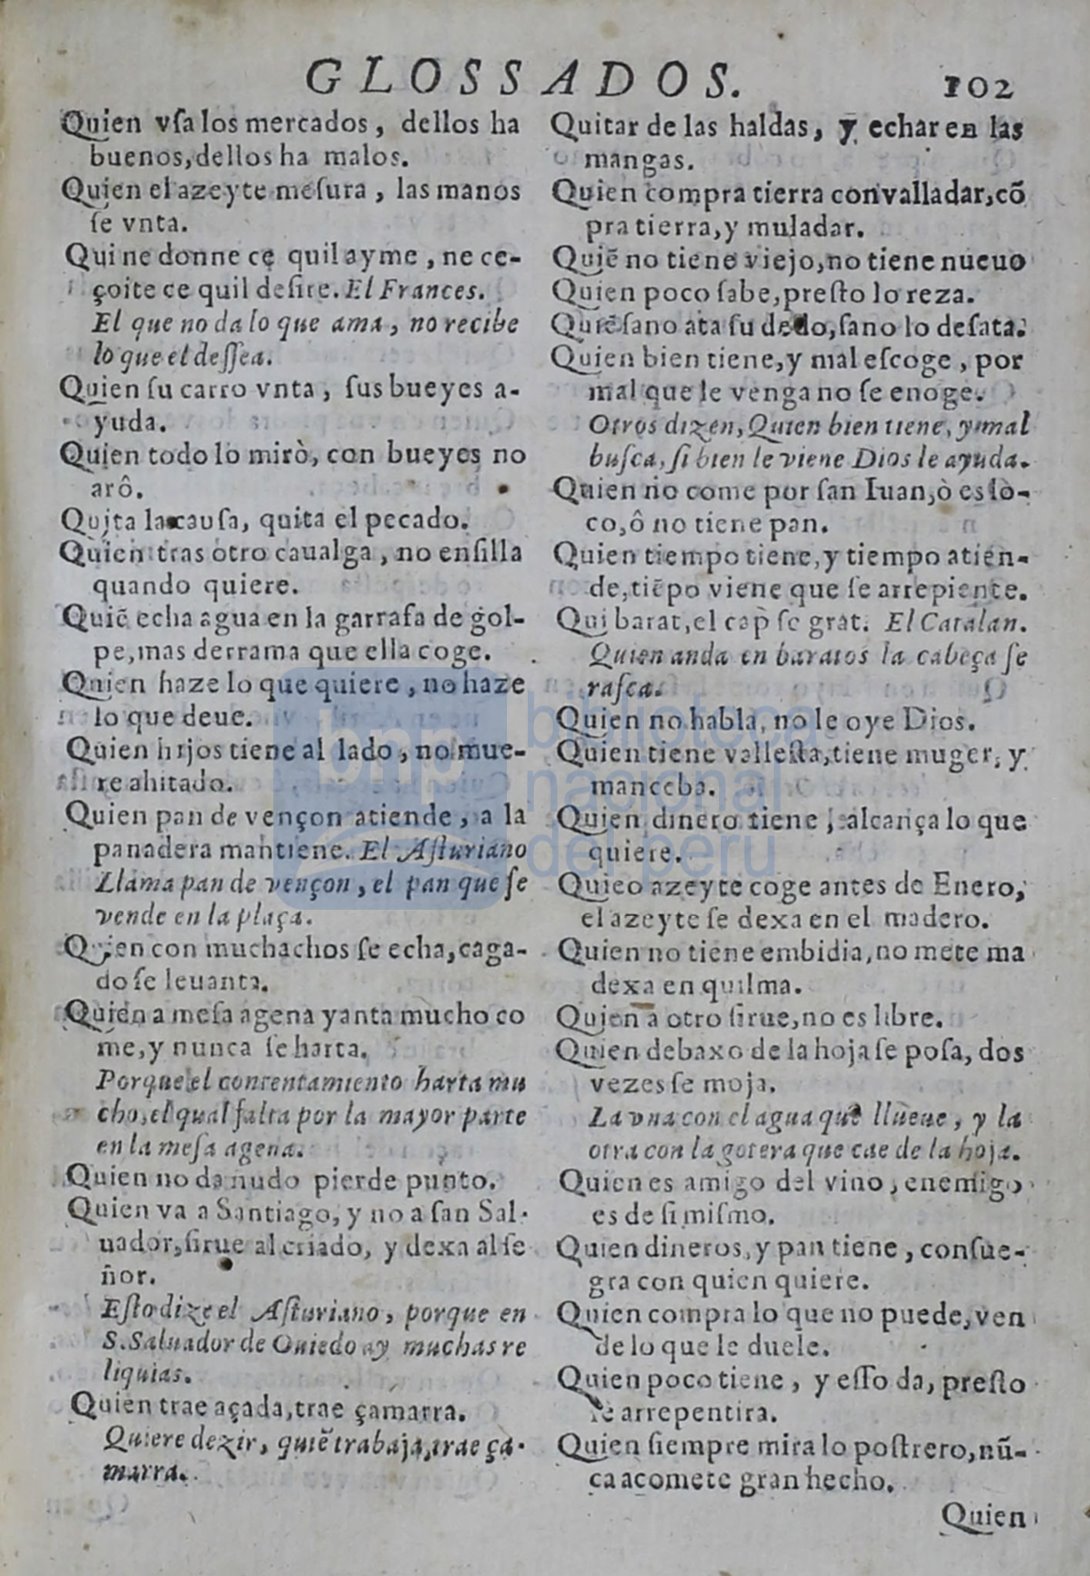 GLOSSADOS. 102
Quien vſa los mercados, dellos ha
buenos, dellos ha malos.
Quien el azeyte meſura, las manos
ſe vnta.
Qui ne donne ce quil ayme, ne ce-
çoite ce quil deſire. El Frances.
El que no da lo que ama, no recibe
lo que el deſſea.
Quien ſu carro vnta, ſus bueyes a-
yuda.
Quien todo lo mirò, con bueyes no
arô.
Quita la cauſa, quita el pecado.
Quien tras otro caualga, no enſilla
quando quiere.
Quiẽ echa agua en la garrafa de gol-
pe, mas derrama que ella coge.
Quien haze lo que quiere, no haze
lo que deue.
Quien hijos tiene al lado, no mue-
re ahitado.
Quien pan de vençon atiende, a la
panadera mantiene. El Aſturiano
Llama pan de vençon, el pan que ſe
vende en la plaça.
Quien con muchachos ſe echa, caga-
do ſe leuanta.
Quien a meſa agena yanta mucho co
me, y nunca ſe harta.
Porque el contentamiento harta mu
cho, el qual falta por la mayor parte
en la meſa agena.
Quien no da ñudo pierde punto.
Quien va a Santiago, y no a ſan Sal-
uador, ſirue al criado, y dexa al ſe
ñor.
Eſto dize el Aſturiano, porque en
S. Saluador de Ouiedo ay muchas re
liquias.
Quien trae açada, trae çamarra.
Quiere dezir, quiẽ trabaja, trae ça-
marra.
Quitar de las haldas, y echar en las
mangas.
Quien compra tierra con valladar, cõ
pra tierra, y muladar.
Quiẽ no tiene viejo, no tiene nueuo
Quien poco ſabe, preſto lo reza.
Quiẽ ſano ata ſu dedo, ſano lo deſata.
Quien bien tiene, y mal eſcoge, por
mal que le venga no ſe enoge.
Otros dizen, Quien bien tiene, y mal
buſca, ſi bien le viene Dios le ayuda.
Quien no come por ſan Iuan, ò es lo-
co, ô no tiene pan.
Quien tiempo tiene, y tiempo atien-
de, tiẽpo viene que ſe arrepiente.
Qui barat, el cap ſe grat. El Catalan.
Quien anda en baratos la cabeça ſe
raſca.
Quien no habla, no le oye Dios.
Quien tiene valleſta, tiene muger, y
manceba.
Quien dinero tiene, alcança lo que
quiere.
Quieo azeyte coge antes de Enero,
el azeyte ſe dexa en el madero.
Quien no tiene embidia, no mete ma
dexa en quilma.
Quien a otro ſirue, no es libre.
Quien debaxo de la hoja ſe poſa, dos
vezes ſe moja.
La vna con el agua que llueue, y la
otra con la gotera que cae de la hoja.
Quien es amigo del vino, enemigo
es de ſi miſmo.
Quien dineros, y pan tiene, conſue-
gra con quien quiere.
Quien compra lo que no puede, ven
de lo que le duele.
Quien poco tiene, y eſſo da, preſto
ſe arrepentira.
Quien ſiempre mira lo poſtrero, nũ-
ca acomete gran hecho.
Quien
bnp biblioteca
nacional
del perú